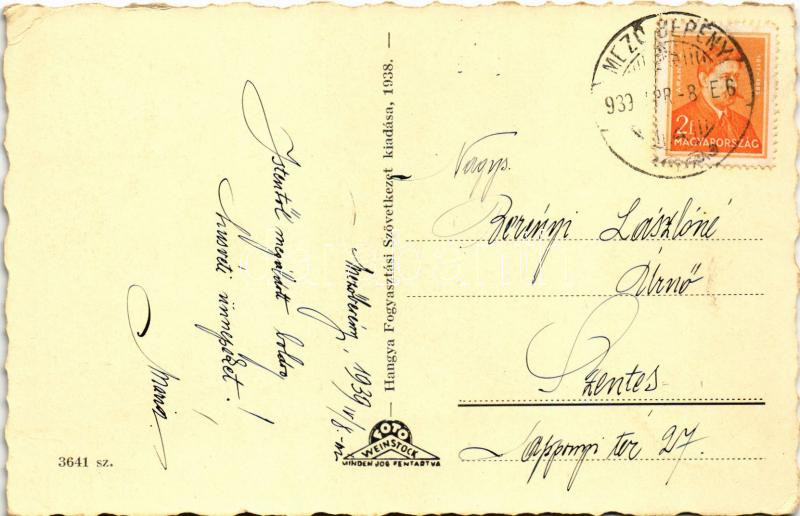 Istentől megáldott boldog
húsvéti ünnepeket!
Mária
Mezőberény, 1939 IV/8.-án
3641 sz.
— Hangya Fogyasztási Szövetkezet kiadása, 1938. —
FOTO
WEINSTOCK
MINDEN JOG FENTARTVA
MEZŐBERÉNY
939 APR -8. E 6
ARANY
1817-1882
2f
MAGYARORSZÁG
Nagys.
Berényi Lászlóné
Úrnő
Szentes
Apponyi tér 27.